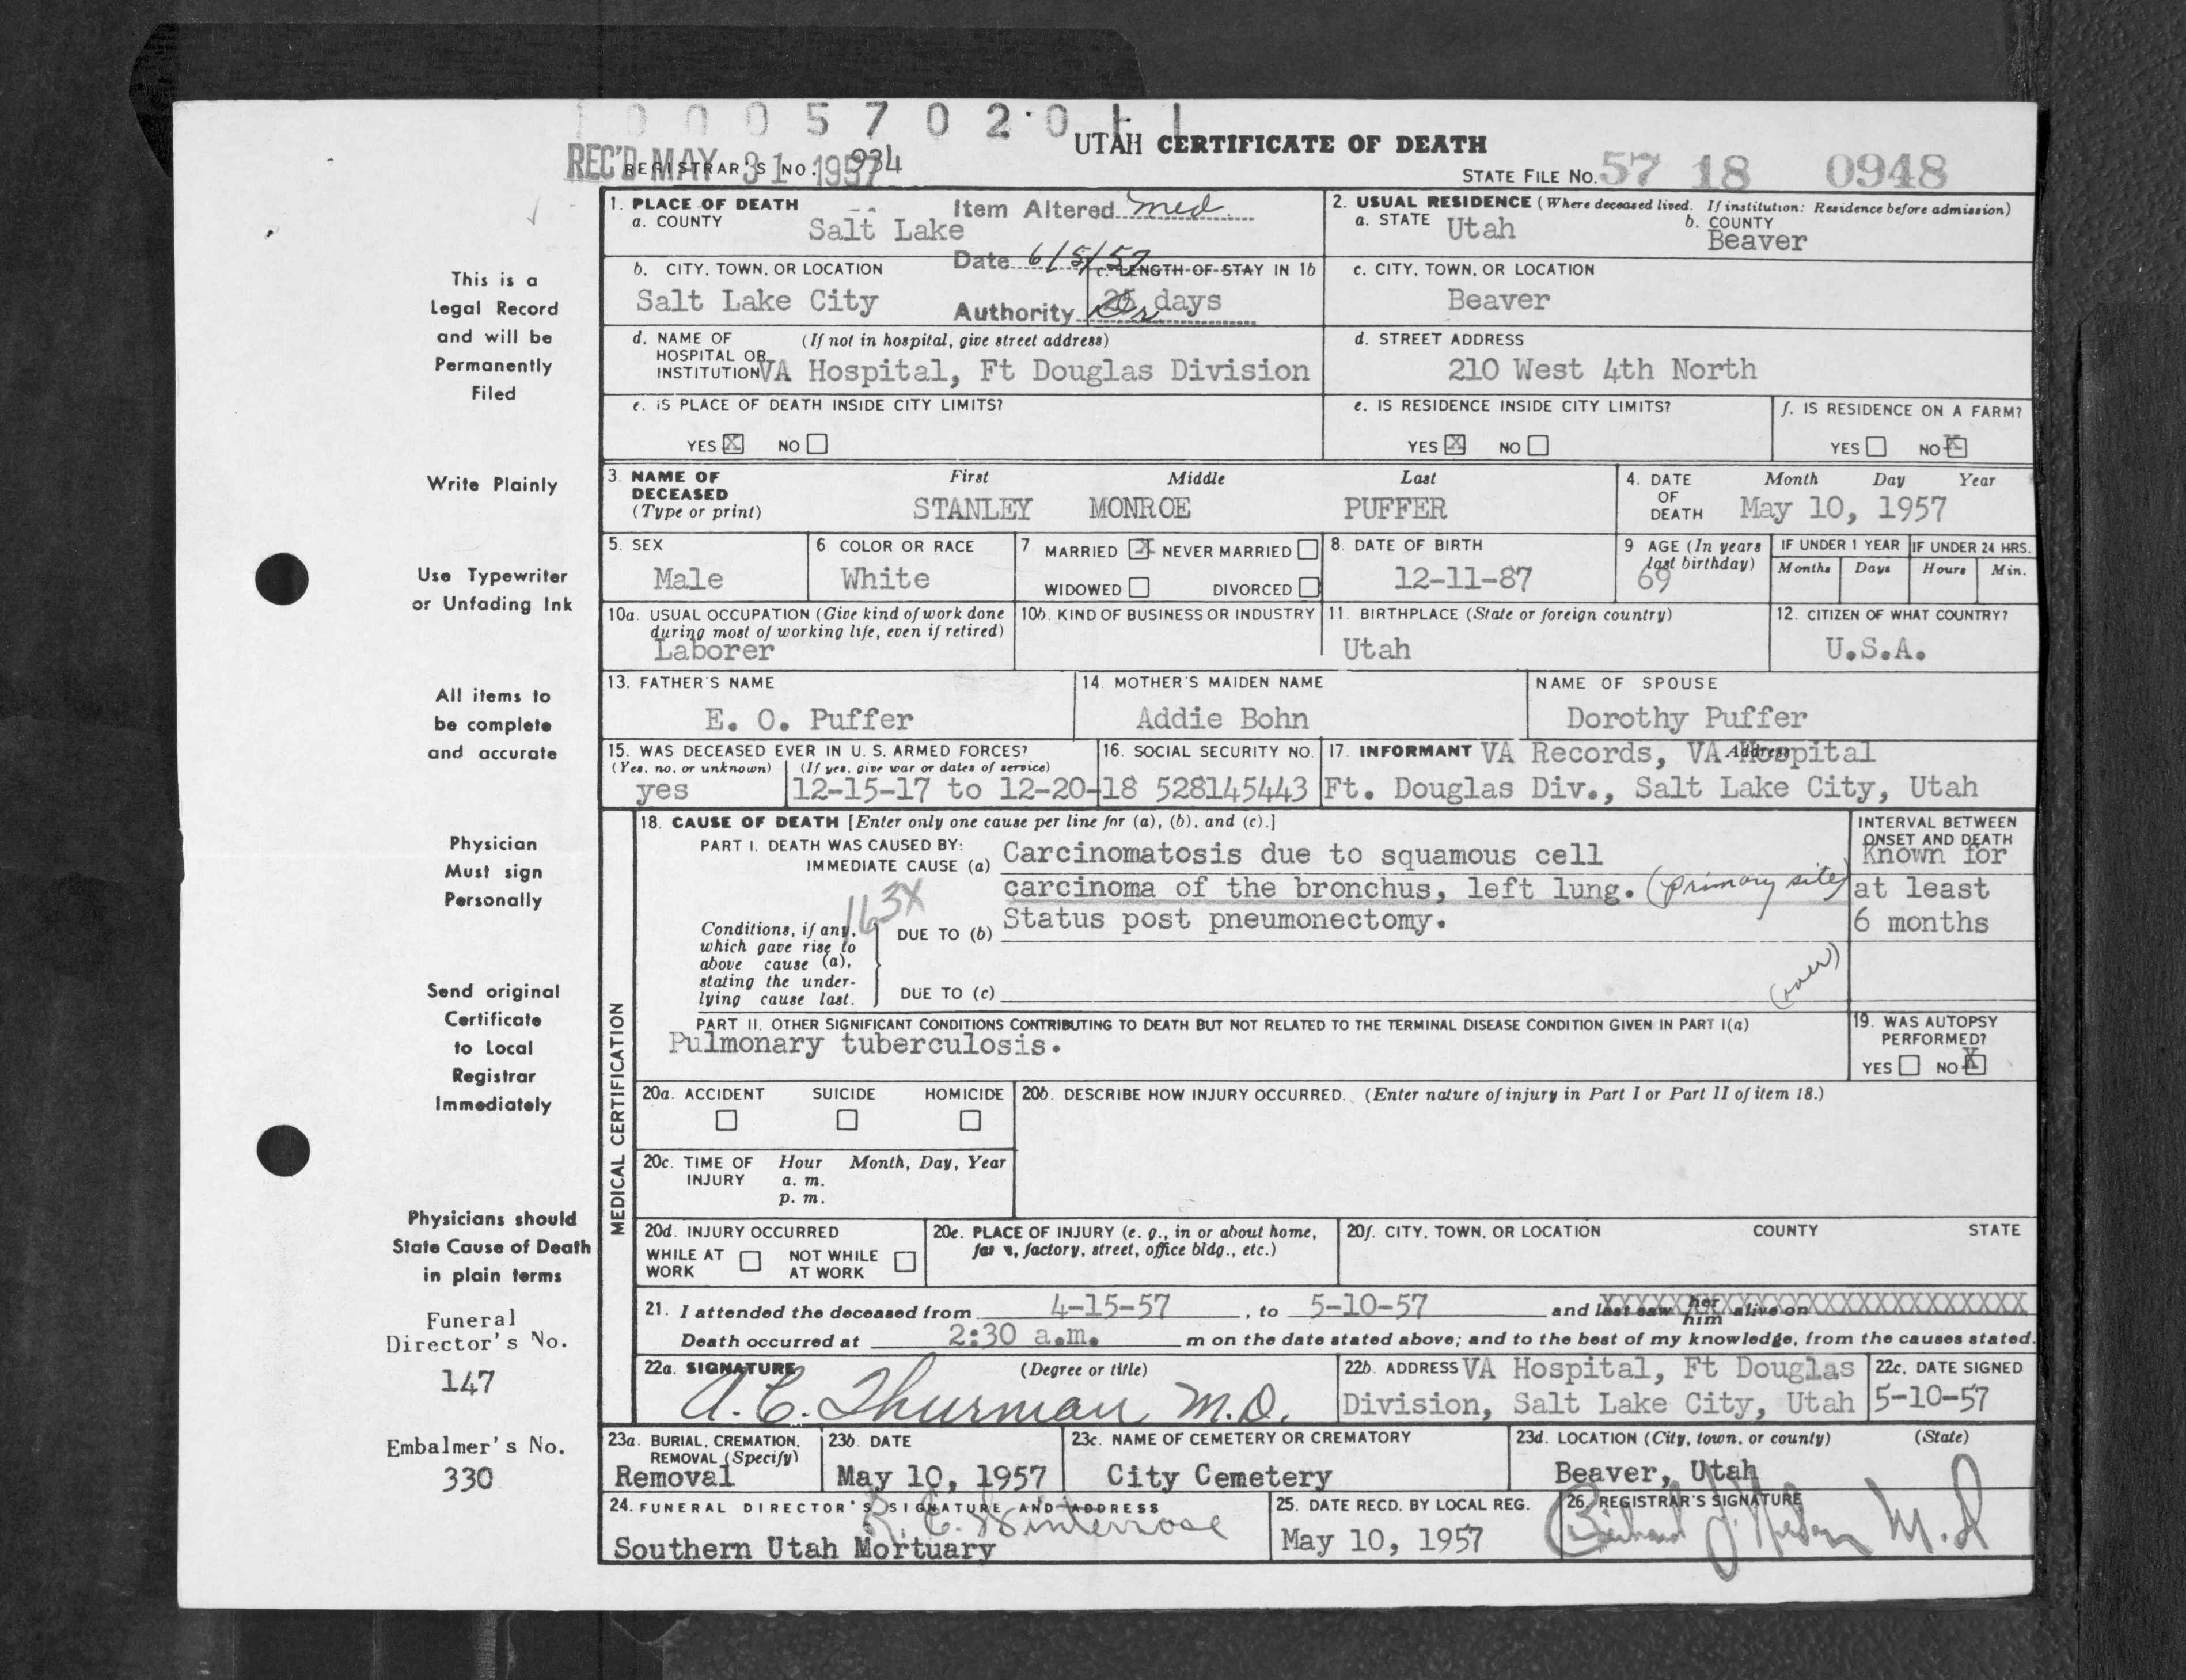 1 0 0 0 5 7 0 2 0 1 1
UTAH CERTIFICATE OF DEATH
REC'D MAY 31 1957
REGISTRAR'S NO. 934
STATE FILE NO. 57 18 0948
1. PLACE OF DEATH
a. COUNTY Salt Lake
Item Altered Med.
Date 6/5/57
Authority Dr
2. USUAL RESIDENCE (Where deceased lived. If institution: Residence before admission)
a. STATE Utah
b. COUNTY Beaver
b. CITY, TOWN, OR LOCATION
Salt Lake City
c. LENGTH OF STAY IN 1b
25 days
c. CITY, TOWN, OR LOCATION
Beaver
d. NAME OF HOSPITAL OR INSTITUTION (If not in hospital, give street address)
VA Hospital, Ft Douglas Division
d. STREET ADDRESS
210 West 4th North
e. IS PLACE OF DEATH INSIDE CITY LIMITS?
YES X NO
e. IS RESIDENCE INSIDE CITY LIMITS?
YES X NO
f. IS RESIDENCE ON A FARM?
YES NO X
3. NAME OF DECEASED (Type or print)
First Middle Last
STANLEY MONROE PUFFER
4. DATE OF DEATH
Month Day Year
May 10, 1957
5. SEX
Male
6 COLOR OR RACE
White
7 MARRIED X NEVER MARRIED
WIDOWED DIVORCED
8. DATE OF BIRTH
12-11-87
9 AGE (In years last birthday)
69
IF UNDER 1 YEAR
Months Days
IF UNDER 24 HRS.
Hours Min.
10a. USUAL OCCUPATION (Give kind of work done during most of working life, even if retired)
Laborer
10b. KIND OF BUSINESS OR INDUSTRY
11. BIRTHPLACE (State or foreign country)
Utah
12. CITIZEN OF WHAT COUNTRY?
U.S.A.
13. FATHER'S NAME
E. O. Puffer
14. MOTHER'S MAIDEN NAME
Addie Bohn
NAME OF SPOUSE
Dorothy Puffer
15. WAS DECEASED EVER IN U. S. ARMED FORCES?
(Yes, no, or unknown) (If yes, give war or dates of service)
yes 12-15-17 to 12-20-18
16. SOCIAL SECURITY NO.
528145443
17. INFORMANT Address
VA Records, VA Hospital
Ft. Douglas Div., Salt Lake City, Utah
MEDICAL CERTIFICATION
18. CAUSE OF DEATH [Enter only one cause per line for (a), (b), and (c).]
PART I. DEATH WAS CAUSED BY:
IMMEDIATE CAUSE (a) Carcinomatosis due to squamous cell
carcinoma of the bronchus, left lung. (primary site)
163X
Conditions, if any, which gave rise to above cause (a), stating the underlying cause last.
DUE TO (b) Status post pneumonectomy.
DUE TO (c)
(over)
INTERVAL BETWEEN ONSET AND DEATH
Known for
at least
6 months
PART II. OTHER SIGNIFICANT CONDITIONS CONTRIBUTING TO DEATH BUT NOT RELATED TO THE TERMINAL DISEASE CONDITION GIVEN IN PART I(a)
Pulmonary tuberculosis.
19. WAS AUTOPSY PERFORMED?
YES NO X
20a. ACCIDENT SUICIDE HOMICIDE
20b. DESCRIBE HOW INJURY OCCURRED. (Enter nature of injury in Part I or Part II of item 18.)
20c. TIME OF INJURY
Hour Month, Day, Year
a. m.
p. m.
20d. INJURY OCCURRED
WHILE AT WORK NOT WHILE AT WORK
20e. PLACE OF INJURY (e. g., in or about home, farm, factory, street, office bldg., etc.)
20f. CITY, TOWN, OR LOCATION COUNTY STATE
21. I attended the deceased from 4-15-57, to 5-10-57 and last saw her him alive on XXXXXXXXXXXXXXXXXXXX
Death occurred at 2:30 a.m. m on the date stated above; and to the best of my knowledge, from the causes stated.
22a. SIGNATURE (Degree or title)
A. C. Thurman M.D.
22b. ADDRESS VA Hospital, Ft Douglas
Division, Salt Lake City, Utah
22c. DATE SIGNED
5-10-57
23a. BURIAL, CREMATION, REMOVAL (Specify)
Removal
23b. DATE
May 10, 1957
23c. NAME OF CEMETERY OR CREMATORY
City Cemetery
23d. LOCATION (City, town, or county) (State)
Beaver, Utah
24. FUNERAL DIRECTOR'S SIGNATURE AND ADDRESS
R. C. Winterrose
Southern Utah Mortuary
25. DATE RECD. BY LOCAL REG.
May 10, 1957
26. REGISTRAR'S SIGNATURE
M.D
This is a
Legal Record
and will be
Permanently
Filed
Write Plainly
Use Typewriter
or Unfading Ink
All items to
be complete
and accurate
Physician
Must sign
Personally
Send original
Certificate
to Local
Registrar
Immediately
Physicians should
State Cause of Death
in plain terms
Funeral
Director's No.
147
Embalmer's No.
330